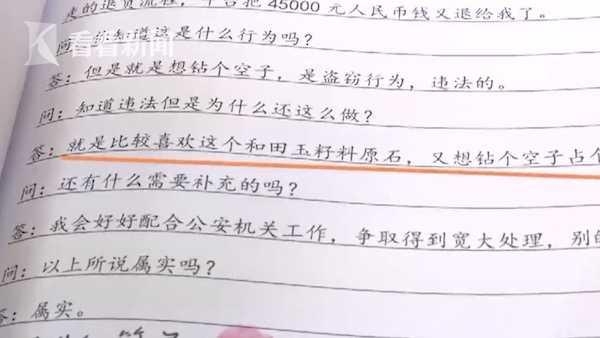 走的退货流程，平台把 45000 元人民币钱又退给我了。
看看新闻
问：你知道这是什么行为吗？
答：但是就是想钻个空子，是盗窃行为，违法的。
问：知道违法但是为什么还这么做？
答：就是比较喜欢这个和田玉籽料原石，又想钻个空子占个
问：还有什么需要补充的吗？
答：我会好好配合公安机关工作，争取得到宽大处理，别的
问：以上所说属实吗？
答：属实。